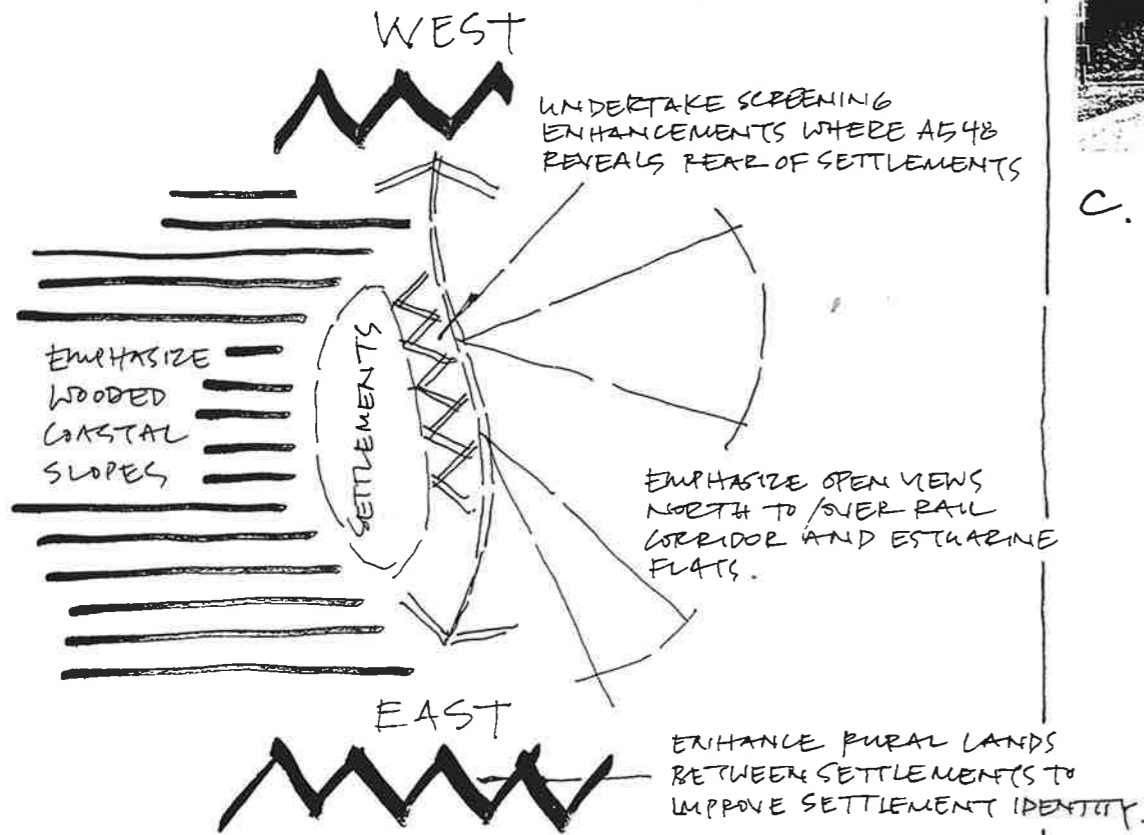 WEST
UNDERTAKE SCREENING
ENHANCEMENTS WHERE A548
REVEALS REAR OF SETTLEMENTS
C.
EMPHASIZE
WOODED
COASTAL
SLOPES
SETTLEMENTS
EMPHASIZE OPEN VIEWS
NORTH TO / OVER RAIL
CORRIDOR AND ESTUARINE
FLATS.
EAST
ENHANCE RURAL LANDS
BETWEEN SETTLEMENTS TO
IMPROVE SETTLEMENT IDENTITY.